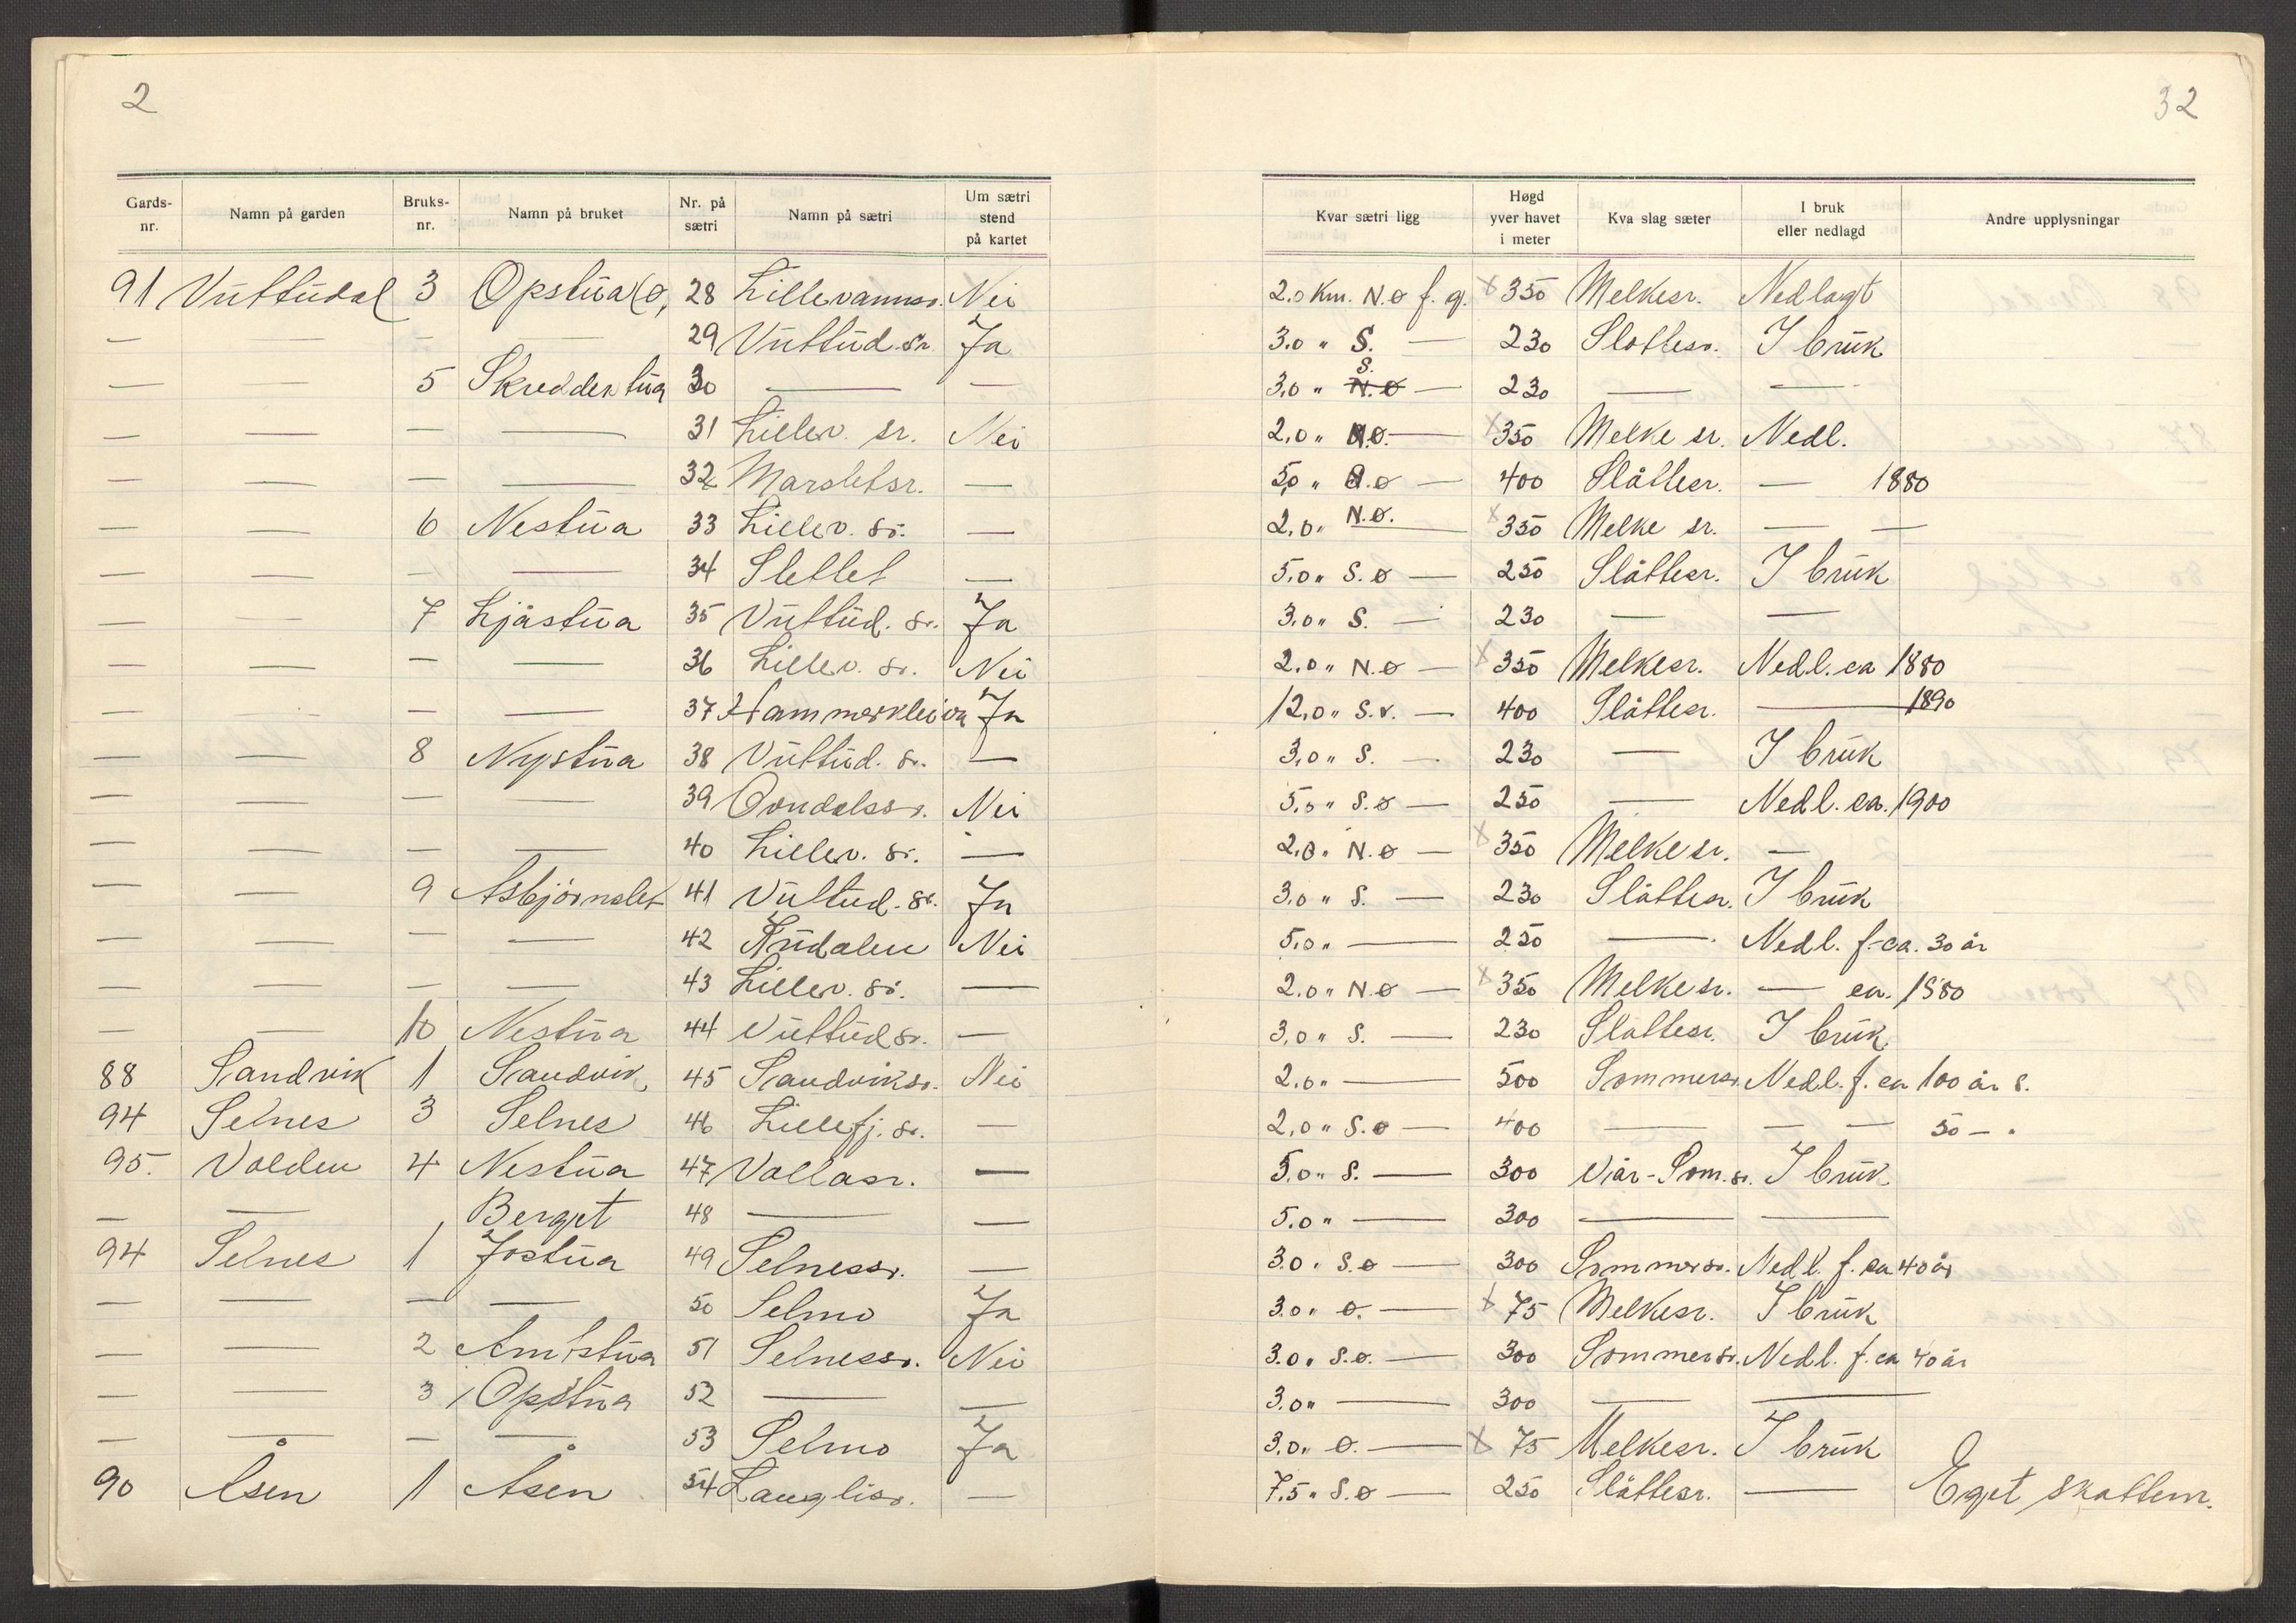 2
32
Gards-nr. Namn på garden Bruks-nr. Namn på bruket Nr. på sætri Namn på sætri Um sætri stend på kartet Kvar sætri ligg Høgd yver havet i meter Kva slag sæter I bruk eller nedlagd Andre upplysningar
91 Vuttudal 3 Opstua 28 Lillevannsr. Nei 2.0 Km. N.ø f. g. x 350 Melkesr. Nedlagt
— — — — 29 Vuttud. sr. Ja 3.0 " S. — 230 Slottesr. I bruk
— — 5 Skreddertua 30 — — 3.0 " S. N.ø — 230 — —
— — — — 31 Lillev. sr. Nei 2.0 " N.ø. — x 350 Melke sr. Nedl.
— — — — 32 Marsletsr. — 5.0 " S.ø — 400 Slåttesr. — 1880
— — 6 Nestua 33 Lillev. sr. — 2.0 " N.ø. — x 350 Melke sr. — —
— — — — 34 Slettet — 5.0 " S.ø — 250 Slåttesr. I bruk
— — 7 Ljåstua 35 Vuttud. sr. Ja 3.0 " S. — 230 — —
— — — — 36 Lillev. sr. Nei 2.0 " N.ø — x 350 Melkesr. Nedl. ca 1880
— — — — 37 Hammerkleiva Ja 12.0 " S.v. — 400 Slåttesr. — 1890
— — 8 Nystua 38 Vuttud. sr. — 3.0 " S. — 230 — I bruk
— — — — 39 Nei 5.0 " S.ø — 250 — Nedl. ca. 1900
— — — — 40 Lillev. sr. — 2.0 " N.ø — x 350 Melkesr. —
— — 9 Asbjörnslet 41 Vuttud. sr. Ja 3.0 " S. — 230 Slåttesr. I bruk
— — — — 42 Nei 5.0 " — 250 — Nedl. f. ca. 30 år
— — — — 43 Lillev. sr. — 2.0 " N.ø — x 350 Melkesr. — ca. 1880
— — 10 Nestua 44 Vuttud sr. — 3.0 " S. — 230 Slåttesr. I bruk
88 Sandvik 1 Sandvik 45 Sandviksr. Nei 2.0 " — 500 Sommersr. Nedl. f. ca 100 år s.
94 Selnes 3 Selnes 46 Lillefj. sr. — 2.0 " S.ø — 400 — — — 50 — "
95. Volden 4 Nestua 47 Vollasr. — 5.0 " S. — 300 Vår-Som. sr. I bruk
— — Berget 48 — — 5.0 " — 300 — —
94 Selnes 1 Jostua 49 Selnessr. — 3.0 " S.ø — 300 Sommersr. Nedl. f. ca 40 år
— — — — 50 Selmo Ja 3.0 " ø. — x 75 Melkesr. I bruk
— — 2 Amtstua 51 Selnessr. Nei 3.0 " S.ø. — 300 Sommersr. Nedl. f. ca 40 år
— — 3 Opstua 52 — — 3.0 " — 300 — —
— — — — 53 Selmo Ja 3.0 " ø. — x 75 Melkesr. I bruk
90 Åsen 1 Åsen 54 Langlisr. — 7.5 " S.ø — 250 Slåttesr. — Eget skattenr.